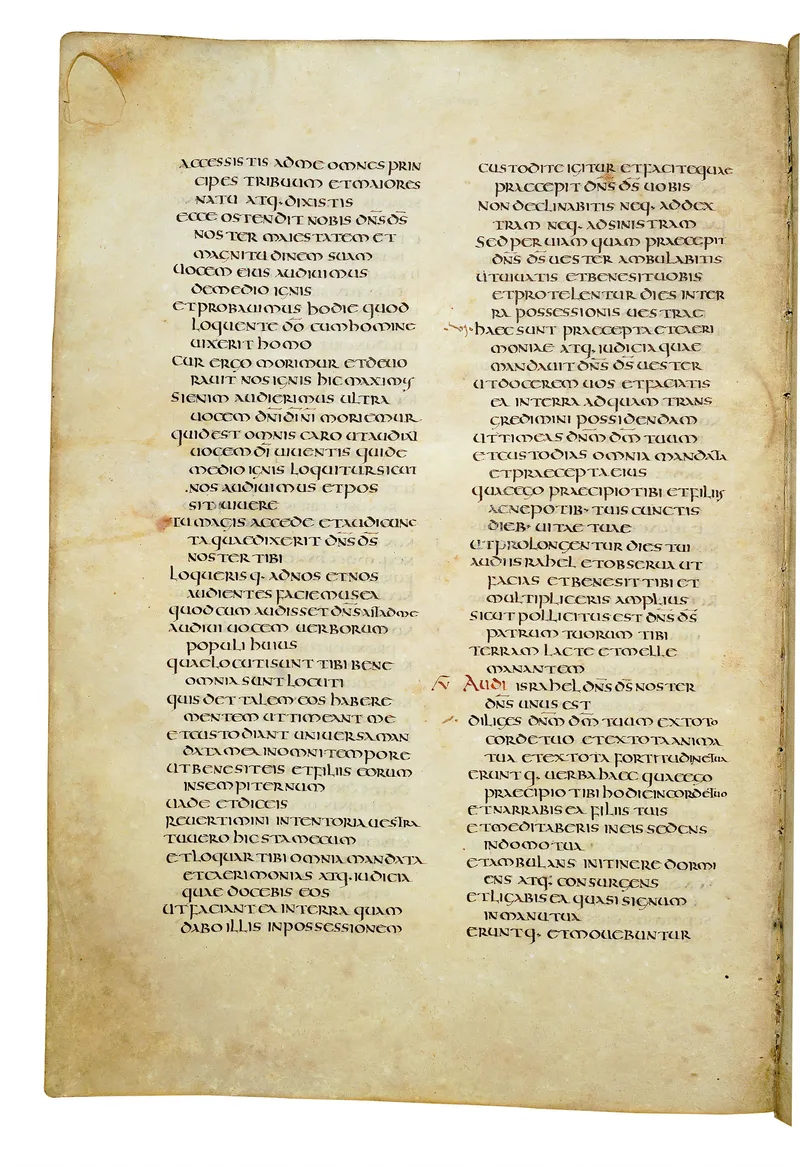 ACCESSISTIS ADME OMNES PRIN
CIPES TRIBUUM ETMAIORES
NATU ATQ· DIXISTIS
ECCE OSTENDIT NOBIS DN̅S D̅S
NOSTER MAIESTATEM ET
MAGNITUDINEM SUAM
UOCEM EIUS AUDIUIMUS
DEMEDIO IGNIS
ETPROBAUIMUS HODIE QUOD
LOQUENTE D̅O CUMHOMINE
UIXERIT HOMO
CUR ERGO MORIMUR ETDEUO
RAUIT NOS IGNIS HIC MAXIMUS
SIENIM AUDIERIMUS ULTRA
UOCEM DN̅I D̅I N̅I MORIEMUR
QUIDEST OMNIS CARO UTAUDIAT
UOCEM D̅I UIUENTIS QUIDE
MEDIO IGNIS LOQUITUR SICUT
NOS AUDIUIMUS ETPOS
SIT UIUERE
TU MAGIS ACCEDE ETAUDI CUNC
TA QUAEDIXERIT DN̅S D̅S
NOSTER TIBI
LOQUERIS Q· ADNOS ETNOS
AUDIENTES FACIEMUS EA
QUOD CUM AUDISSET DN̅S AIT ADME
AUDIUI UOCEM UERBORUM
POPULI HUIUS
QUAE LOCUTI SUNT TIBI BENE
OMNIA SUNT LOCUTI
QUIS DET TALEM EOS HABERE
MENTEM UT TIMEANT ME
ET CUSTODIANT UNIUERSA MAN
DATA MEA INOMNI TEMPORE
UTBENE SIT EIS ETFILIIS EORUM
INSEMPITERNUM
UADE ETDICEIS
REUERTIMINI INTENTORIA UESTRA
TUUERO HIC STA MECUM
ETLOQUAR TIBI OMNIA MANDATA
ETCAERIMONIAS ATQ· IUDICIA
QUAE DOCEBIS EOS
UT FACIANT EA INTERRA QUAM
DABO ILLIS INPOSSESSIONEM
CUSTODITE IGITUR ETFACITE QUAE
PRAECEPIT DN̅S D̅S UOBIS
NON DECLINABITIS NEQ· ADDEX
TRAM NEQ· ADSINISTRAM
SED PER UIAM QUAM PRAECEPIT
DN̅S D̅S UESTER AMBULABITIS
UTUIUATIS ETBENESIT UOBIS
ETPROTELENTUR DIES INTER
RA POSSESSIONIS UESTRAE
HAEC SUNT PRAECEPTA ETCAERI
MONIAE ATQ· IUDICIA QUAE
MANDAUIT DN̅S D̅S UESTER
UTDOCEREM UOS ETFACIATIS
EA INTERRA ADQUAM TRANS
GREDIMINI POSSIDENDAM
UTTIMEAS DN̅M D̅M TUUM
ETCUSTODIAS OMNIA MANDATA
ETPRAECEPTA EIUS
QUAE EGO PRAECIPIO TIBI ETFILIIS
AC NEPOTIB· TUIS CUNCTIS
DIEB· UITAE TUAE
UTPROLONGENTUR DIES TUI
AUDI ISRAHEL ETOBSERUA UT
FACIAS ETBENESIT TIBI ET
MULTIPLICERIS AMPLIUS
SICUT POLLICITUS EST DN̅S D̅S
PATRUM TUORUM TIBI
TERRAM LACTE ETMELLE
MANANTEM
AUDI ISRAHEL DN̅S D̅S NOSTER
DN̅S UNUS EST
DILIGES DN̅M D̅M TUUM EXTOTO
CORDE TUO ETEXTOTA ANIMA
TUA ETEXTOTA FORTITUDINE TUA
ERUNT Q· UERBA HAEC QUAE EGO
PRAECIPIO TIBI HODIE INCORDE TUO
ETNARRABIS EA FILIIS TUIS
ETMEDITABERIS INEIS SEDENS
INDOMO TUA
ETAMBULANS INITINERE DORMI
ENS ATQ· CONSURGENS
ETLIGABIS EA QUASI SIGNUM
INMANU TUA
ERUNT Q· ETMOUEBUNTUR